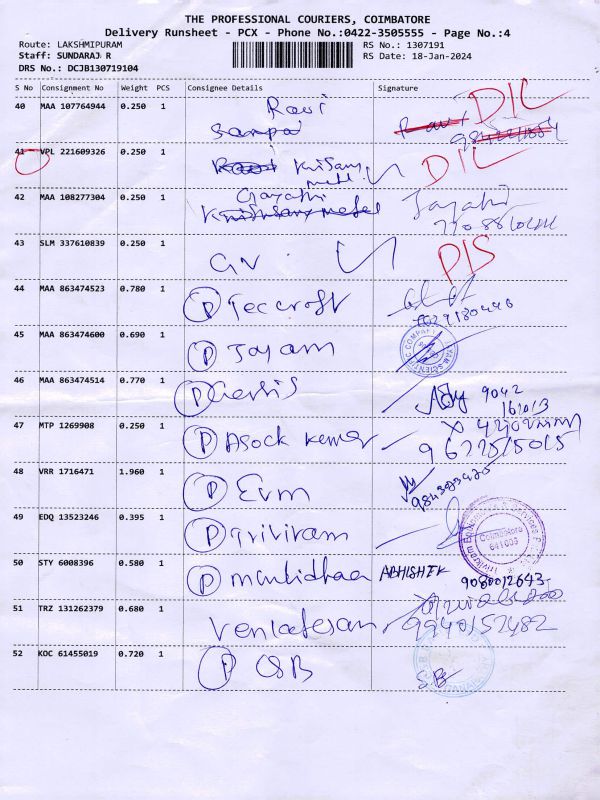 THE PROFESSIONAL COURIERS, COIMBATORE
Delivery Runsheet - PCX - Phone No.:0422-3505555 - Page No.:4
Route: LAKSHMIPURAM
RS No.: 1307191
Staff: SUNDARAJ R
RS Date: 18-Jan-2024
DRS No.: DCJB130719104
S No Consignment No Weight PCS Consignee Details Signature
40 MAA 107764944 0.250 1 Ravi
DIL
41 VPL 221609326 0.250 1
DIL
42 MAA 108277304 0.250 1 Gayathri
43 SLM 337610839 0.250 1 GV
44 MAA 863474523 0.780 1 P Teccroft
45 MAA 863474600 0.690 1 P Jayam
46 MAA 863474514 0.770 1 P
9042
47 MTP 1269908 0.250 1 P Asock Kumar
48 VRR 1716471 1.960 1 P Evm
49 EDQ 13523246 0.395 1 P
Coimbatore
50 STY 6008396 0.580 1 P ABHISHEK
9080012643
51 TRZ 131262379 0.680 1 Venkatesan
9940152482
52 KOC 61455019 0.720 1 P CSB